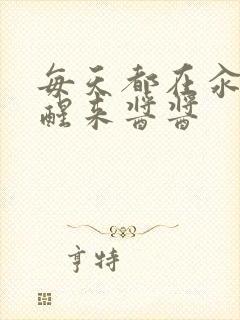 每天都在汆
醒来酱酱
亨特